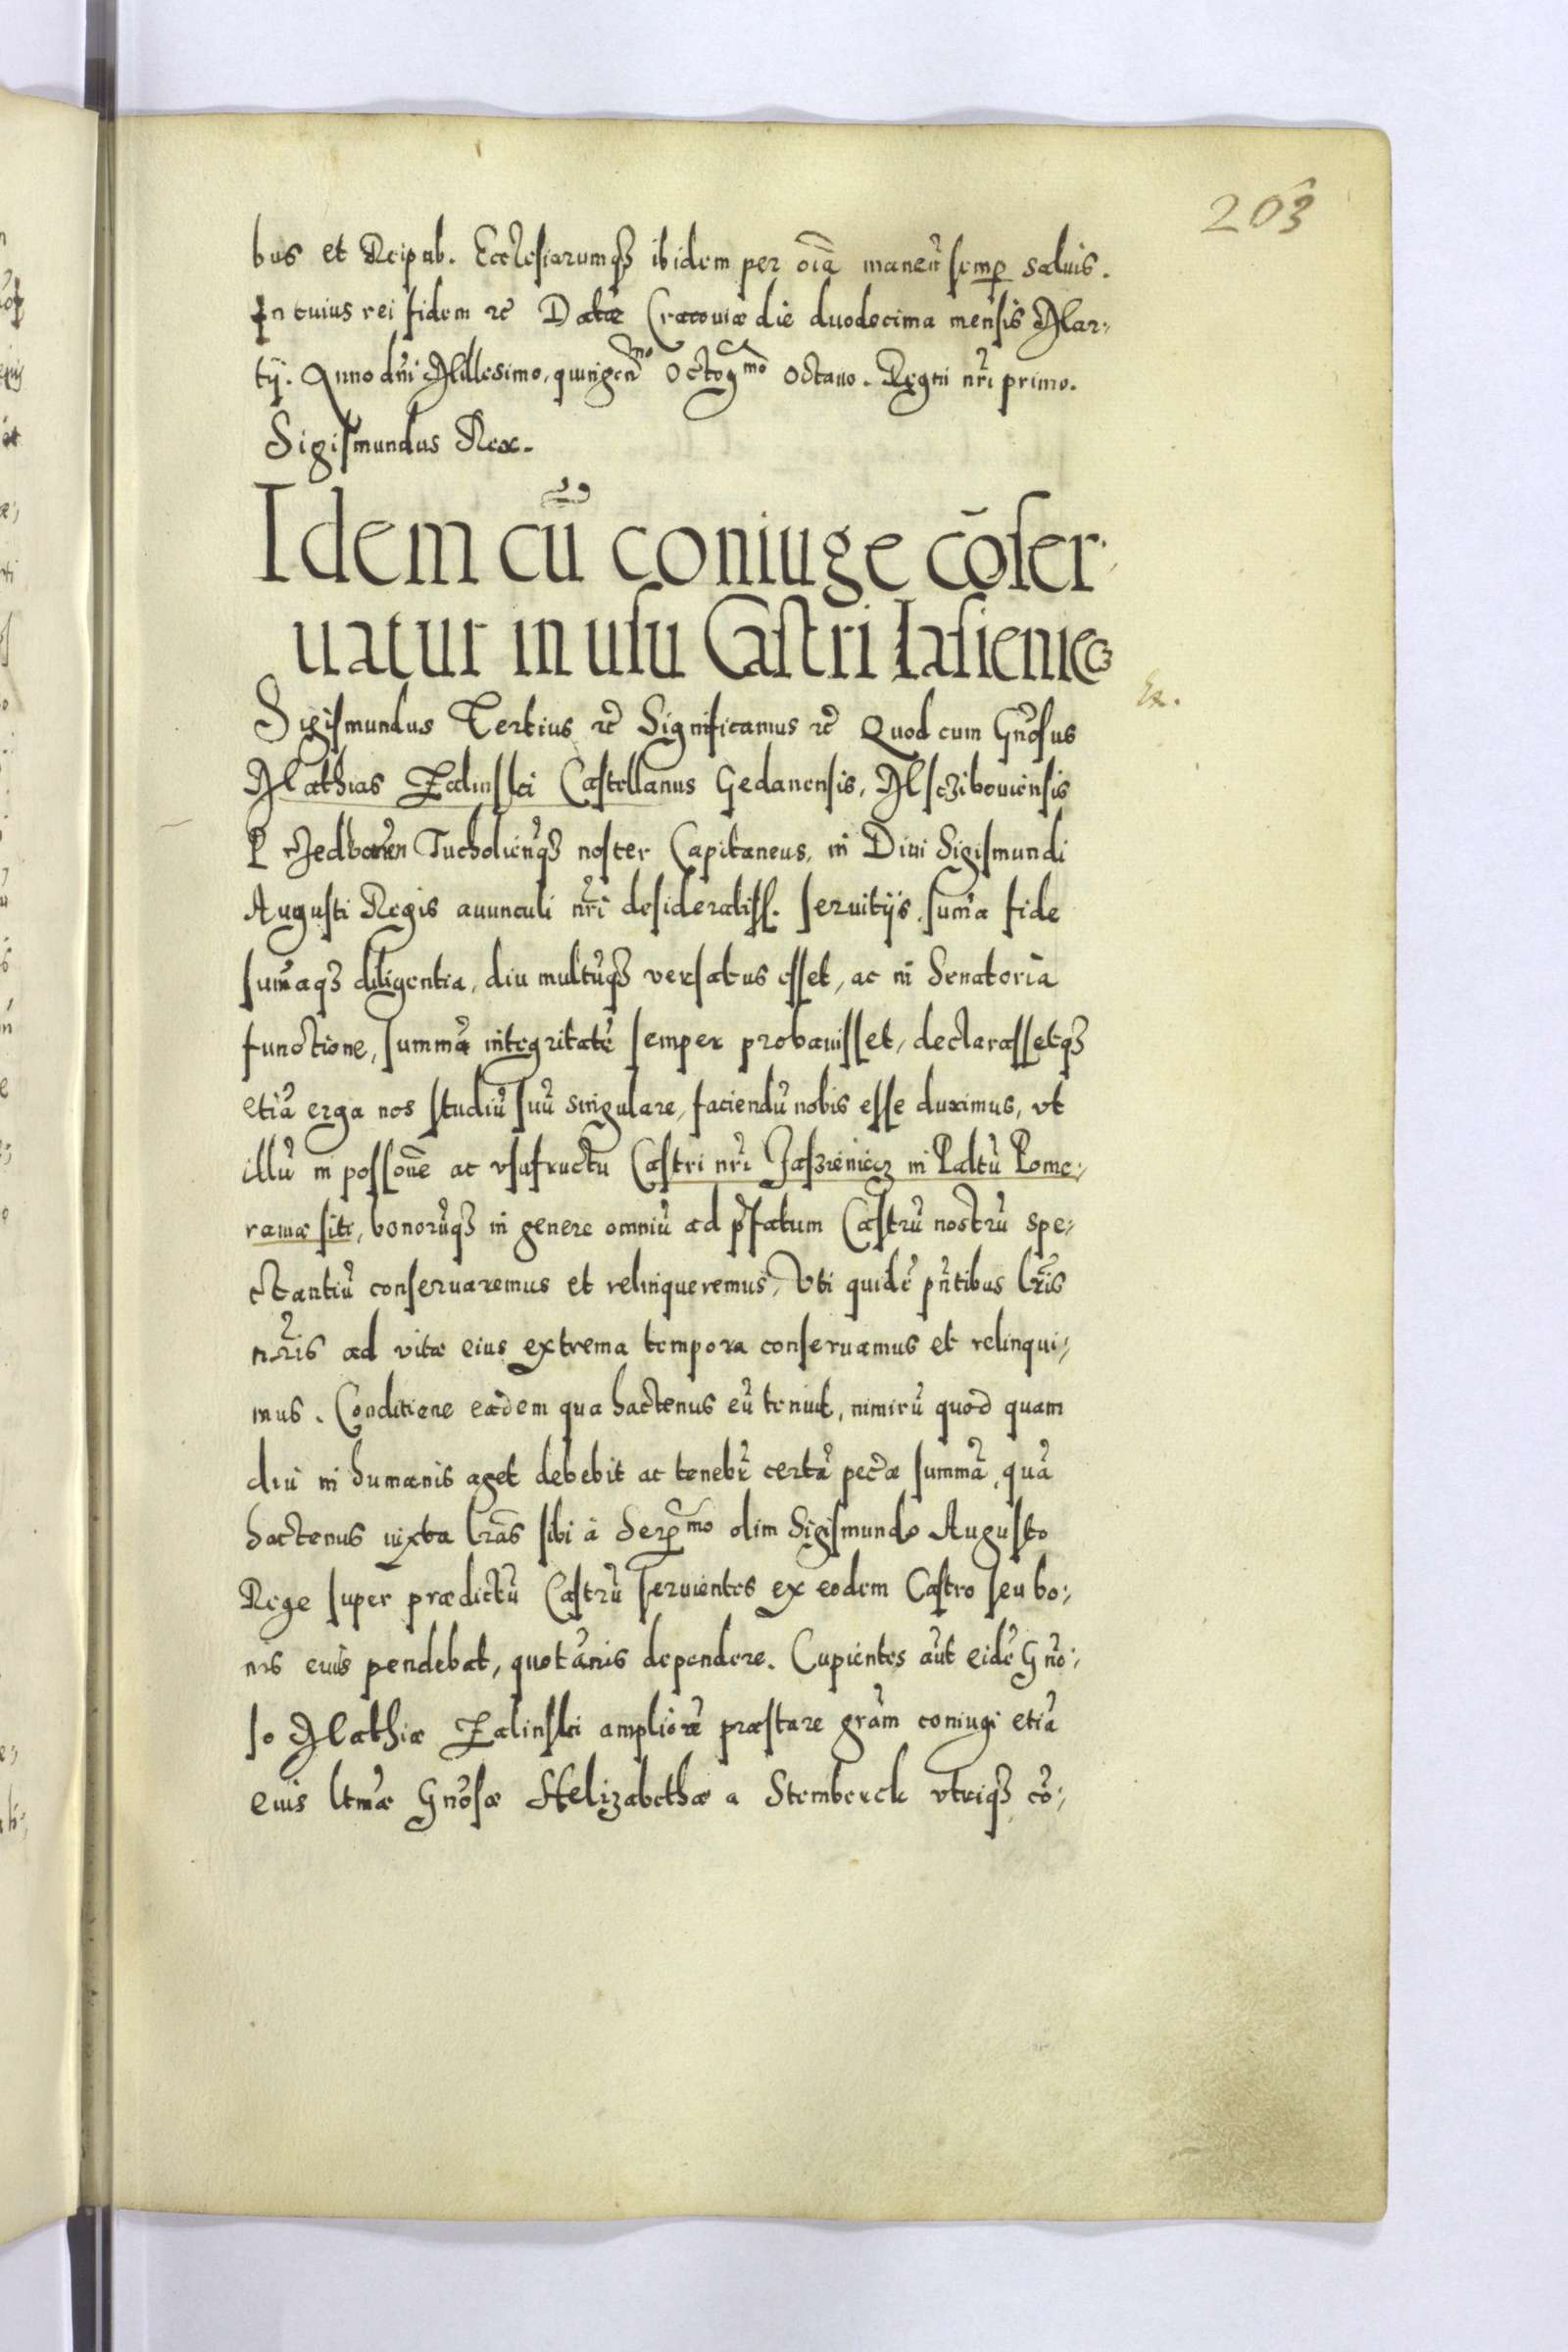 203
bus et Reipub. Ecclesiarumqȝ ibidem per oīa manen̄ semꝑ saluis.
In cuius rei fidem ꝛc̄ Datæ Cracouiæ die duodecima mensis Mar⸗
tij. Anno dn̄i Millesimo, quingen̄ᵐᵒ Octogᵐᵒ Octauo. Regni nr̄i primo.
Sigismundus Rex.
Idem cū coniuge cōser⸗
uatur in usu Castri Iasienie
Sigismundus Tertius ꝛc̄ Significamus ꝛc̄ Quod cum Gn̄osus
Mathias Zalinski Castellanus Gedanensis, Msczibouiensis
Tucholien̄qȝ noster Capitaneus, in Diui Sigismundi
Augusti Regis auunculi nr̄i desideratiss. seruitijs, sum̄a fide
sum̄aqȝ diligentia, diu multūqȝ versatus esset, ac in Senatoria
functione, summā integritatē semper probauisset, declarassetqȝ
etiā erga nos studiū suū singulare, faciendū nobis esse duximus, vt
illū in possōne ac vsufructu Castri nr̄i Jaszieniecz in Pāltū Pome⸗
raniæ siti, bonorūqȝ in genere omniū ad p̄fatum Castrū nostrū spe⸗
ctantiū conseruaremus et relinqueremus, Vti quidē pn̄tibus lr̄is
nr̄is ad vitæ eius extrema tempora conseruamus et relinqui⸗
mus. Conditione eadem qua hactenus eū tenuit, nimirū quod quam
diu in humanis aget debebit ac tenebr̄ certā pec̄æ summā, quā
hactenus iuxta lr̄as sibi à Serꝑᵐᵒ olim Sigismundo Augusto
Rege super prædictū Castrū seruientes ex eodem Castro seu bo⸗
nis eius pendebat, quotānis dependere. Cupientes aūt eidē Gn̄o⸗
so Mathiæ Zalinski ampliorē præstare gr̄am coniugi etiā
eius ltm̄æ Gn̄osæ Helizabethæ a Stemberck vtriqȝ cō⸗